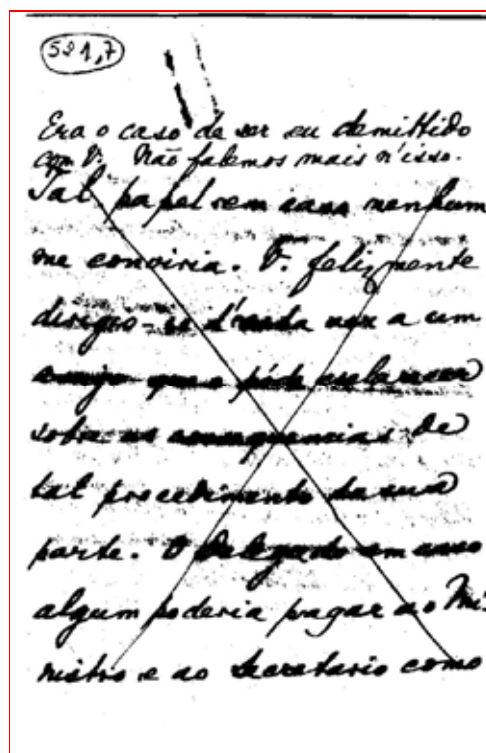 521,7
Era o caso de ser eu demittido
com V. Não falemos mais n'isso.
Tal papel em caso nenhum
me conviria. V. felizmente
dirigio-se d'esta vez a um
amigo que o póde esclarecer
sobre as consequencias de
tal procedimento da sua
parte. O Delegado em caso
algum poderia pagar ao Mi-
nistro e ao Secretario como